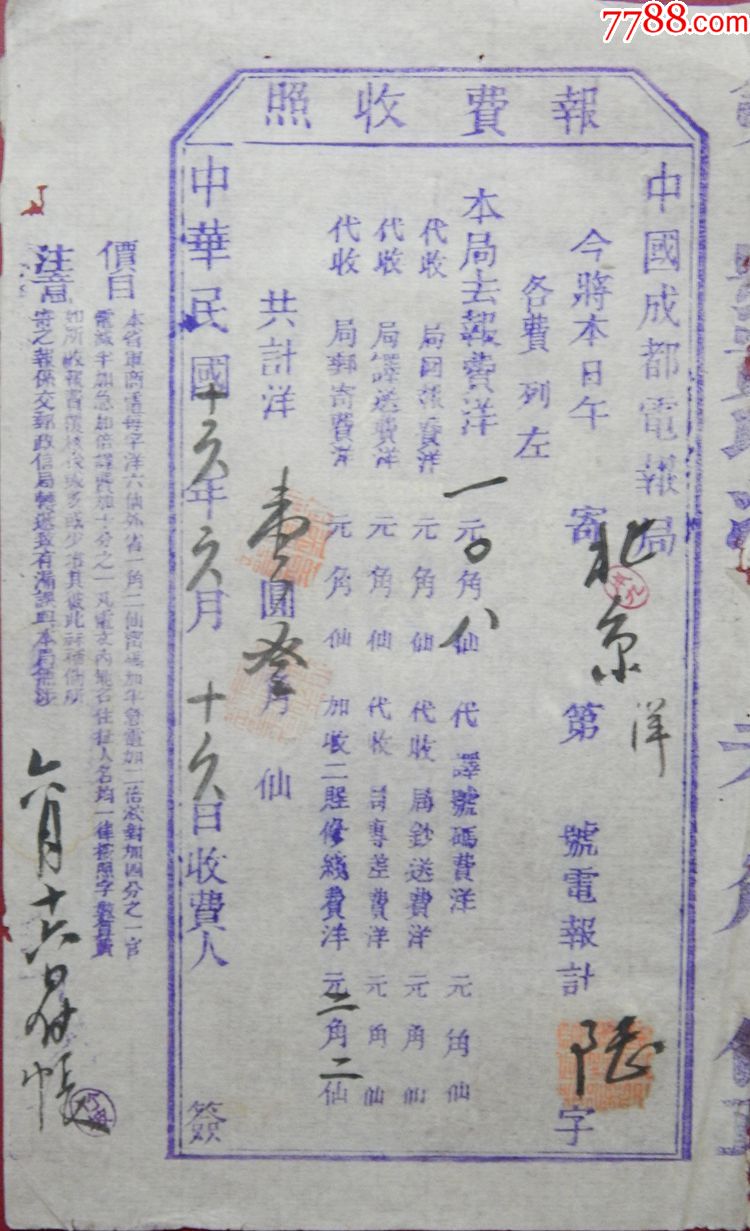 7788.com
報費收照
中國成都電報局
今將本日午 寄 北京 洋 第 號電報計 陸 字
各費列左
本局去報費洋 一元〇角八仙 代譯號碼費洋 元角仙
代收 局回報費洋 元角仙 代收 局鈔送費洋 元角仙
代收 局譯送費洋 元角仙 代收 局專差費洋 元角仙
代收 局郵寄費洋 元角仙 加收二賍修綫費洋 元二角二仙
共計洋 壹圓叁角 仙
中華民國十六年六月十六日收費人 簽
價目
本省軍商電每字洋六仙外省一角二仙密碼加半急電加二倍校對加四分之一官
電減半加急加倍譯費加十分之一凡電文內姓名住址人名均一律按照字數算費
如所收報費覆核後或多或少者其彼此再補倘所
注意
寄之報係交郵政信局轉遞致有漏誤與本局無涉
六月十六日付帳